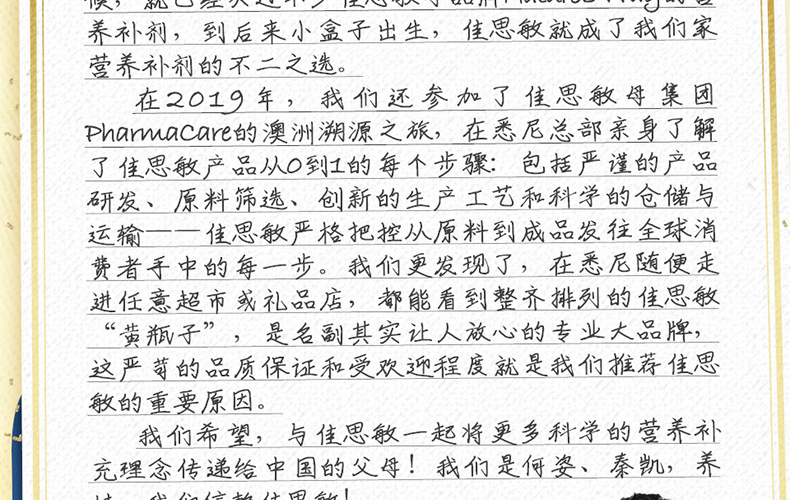 养补剂，到后来小盒子出生，佳思敏就成了我们家
营养补剂的不二之选。
在2019年，我们还参加了佳思敏母集团
PharmaCare的澳洲溯源之旅，在悉尼总部亲身了解
了佳思敏产品从0到1的每个步骤：包括严谨的产品
研发、原料筛选、创新的生产工艺和科学的仓储与
运输——佳思敏严格把控从原料到成品发往全球消
费者手中的每一步。我们更发现了，在悉尼随便走
进任意超市或礼品店，都能看到整齐排列的佳思敏
“黄瓶子”，是名副其实让人放心的专业大品牌，
这严苛的品质保证和受欢迎程度就是我们推荐佳思
敏的重要原因。
我们希望，与佳思敏一起将更多科学的营养补
充理念传递给中国的父母！我们是何姿、秦凯，养